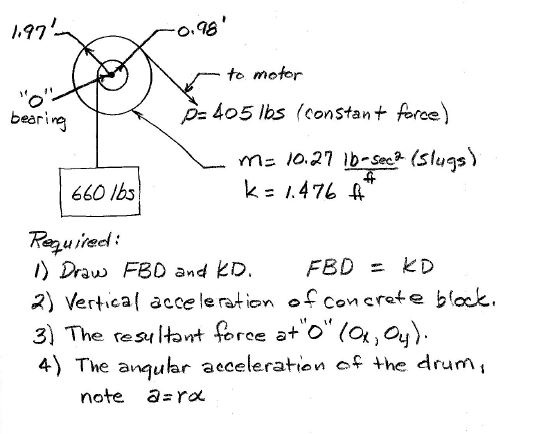 1.97'
0.98'
to motor
"O"
bearing
P= 405 lbs (constant force)
m= 10.27 lb-sec² (slugs)
ft
k = 1.476 ft
660 lbs
Required:
1) Draw FBD and KD. FBD = KD
2) Vertical acceleration of concrete block.
3) The resultant force at "O" (Ox, Oy).
4) The angular acceleration of the drum,
note a=rα